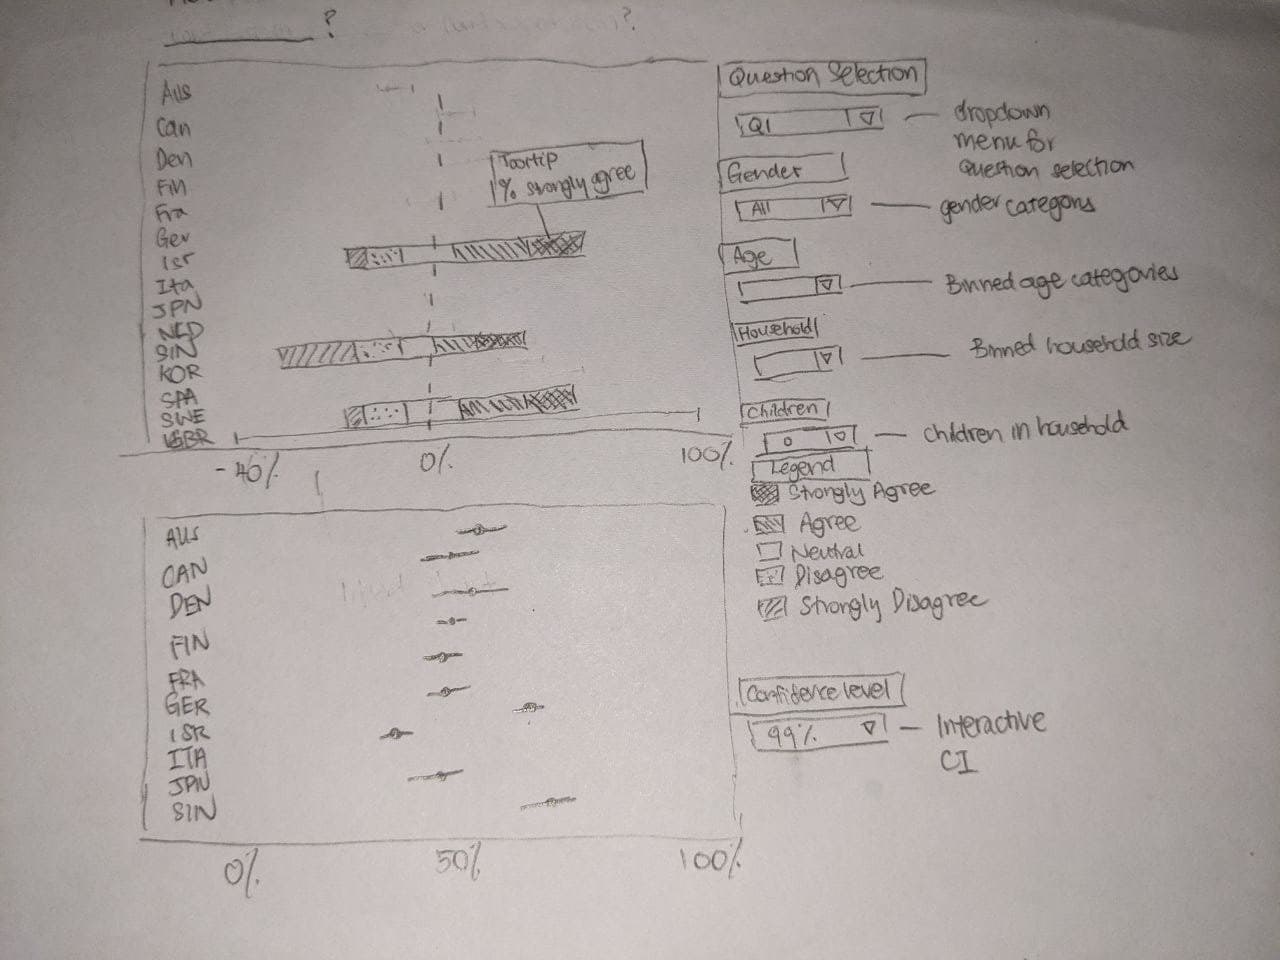 ?
Aus
Can
Den
Fin
Fra
Ger
Isr
Ita
JPN
NED
SIN
KOR
SPA
SWE
GBR
Tooltip
% strongly agree
-40% 0% 100%
Question Selection
Q1
dropdown
menu for
Question selection
Gender
All
gender categons
Age
Binned age categories
Household
Binned household size
Children
0
Children in household
Legend
Strongly Agree
Agree
Neutral
Disagree
Strongly Disagree
AUS
CAN
DEN
FIN
FRA
GER
ISR
ITA
JPN
SIN
0% 50% 100%
Confidence level
99%
Interactive
CI